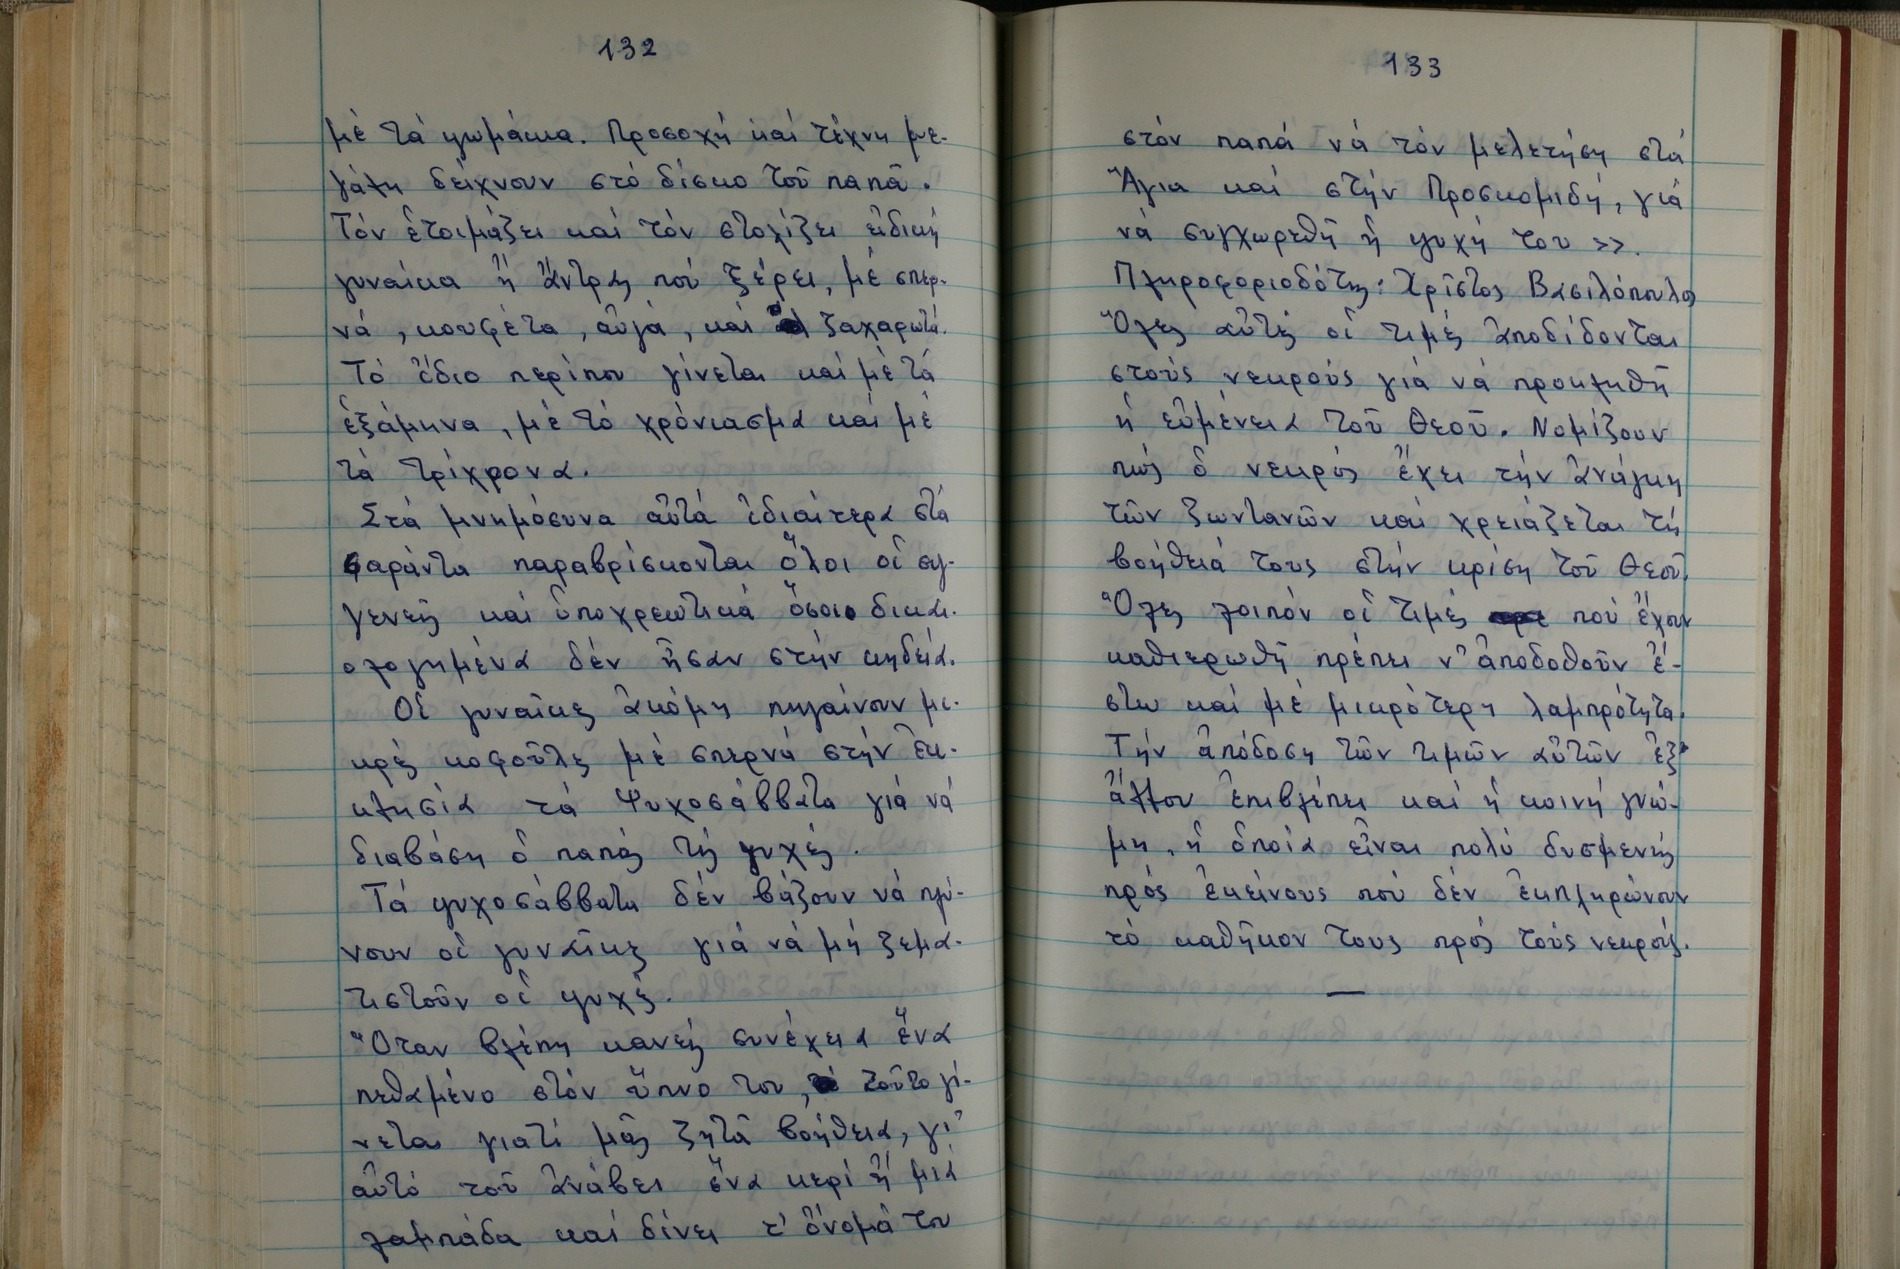 132
μέ τά ψωμάκια. Προσοχή καί τέχνη με-
γάλη δείχνουν στό δίσκο τοῦ παπᾶ.
Τόν ἑτοιμάζει καί τόν στολίζει εἰδική
γυναίκα ἤ ἄντρας πού ξέρει, μέ σπερ-
νά, κουφέτα, αὐγά, καί ζαχαρωτά.
Τό ἴδιο περίπου γίνεται καί μέ τά
ἑξάμηνα, μέ τό χρόνιασμα καί μέ
τά τρίχρονα.
Στά μνημόσυνα αὐτά ἰδιαίτερα στά
σαράντα παραβρίσκονται ὅλοι οἱ συγ-
γενεῖς καί ὑποχρεωτικά ὅσοι δικαι-
ολογημένα δέν ἦσαν στήν κηδεία.
Οἱ γυναῖκες ἀκόμη πηγαίνουν μι-
κρές κοφοῦλες μέ σπερνά στήν ἐκ-
κλησία τά Ψυχοσάββατα γιά νά
διαβάση ὁ παπάς τίς ψυχές.
Τά ψυχοσάββατα δέν βάζουν νά πλύ-
νουν οἱ γυναῖκες γιά νά μή ζεμα-
τιστοῦν οἱ ψυχές.
Ὅταν βλέπη κανείς συνέχεια ἕνα
πεθαμένο στόν ὕπνο του, τοῦτο γί-
νεται γιατί μᾶς ζητᾶ βοήθεια, γι'
αὐτό τοῦ ἀνάβει ἕνα κερί ἤ μιά
λαμπάδα καί δίνει τ' ὄνομά του
133
στόν παπά νά τόν μελετήση στά
Ἅγια καί στήν Προσκομιδή, γιά
νά συγχωρεθῆ ἡ ψυχή του >>.
Πληροφοριοδότης: Χρῖστος Βασιλόπουλος
Ὅλες αὐτές οἱ τιμές ἀποδίδονται
στούς νεκρούς γιά νά προκληθῆ
ἡ εὐμένεια τοῦ Θεοῦ. Νομίζουν
πώς ὁ νεκρός ἔχει τήν ἀνάγκη
τῶν ζωντανῶν καί χρειάζεται τή
βοήθειά τους στήν κρίση τοῦ Θεοῦ.
Ὅλες λοιπόν οἱ τιμές πού ἔχουν
καθιερωθῆ πρέπει ν' ἀποδοθοῦν ἔ-
στω καί μέ μικρότερη λαμπρότητα.
Τήν ἀπόδοση τῶν τιμῶν αὐτῶν ἐξ'
ἄλλου ἐπιβλέπει καί ἡ κοινή γνώ-
μη, ἡ ὁποία εἶναι πολύ δυσμενής
πρός ἐκείνους πού δέν ἐκπληρώνουν
τό καθῆκον τους πρός τούς νεκρούς.
—